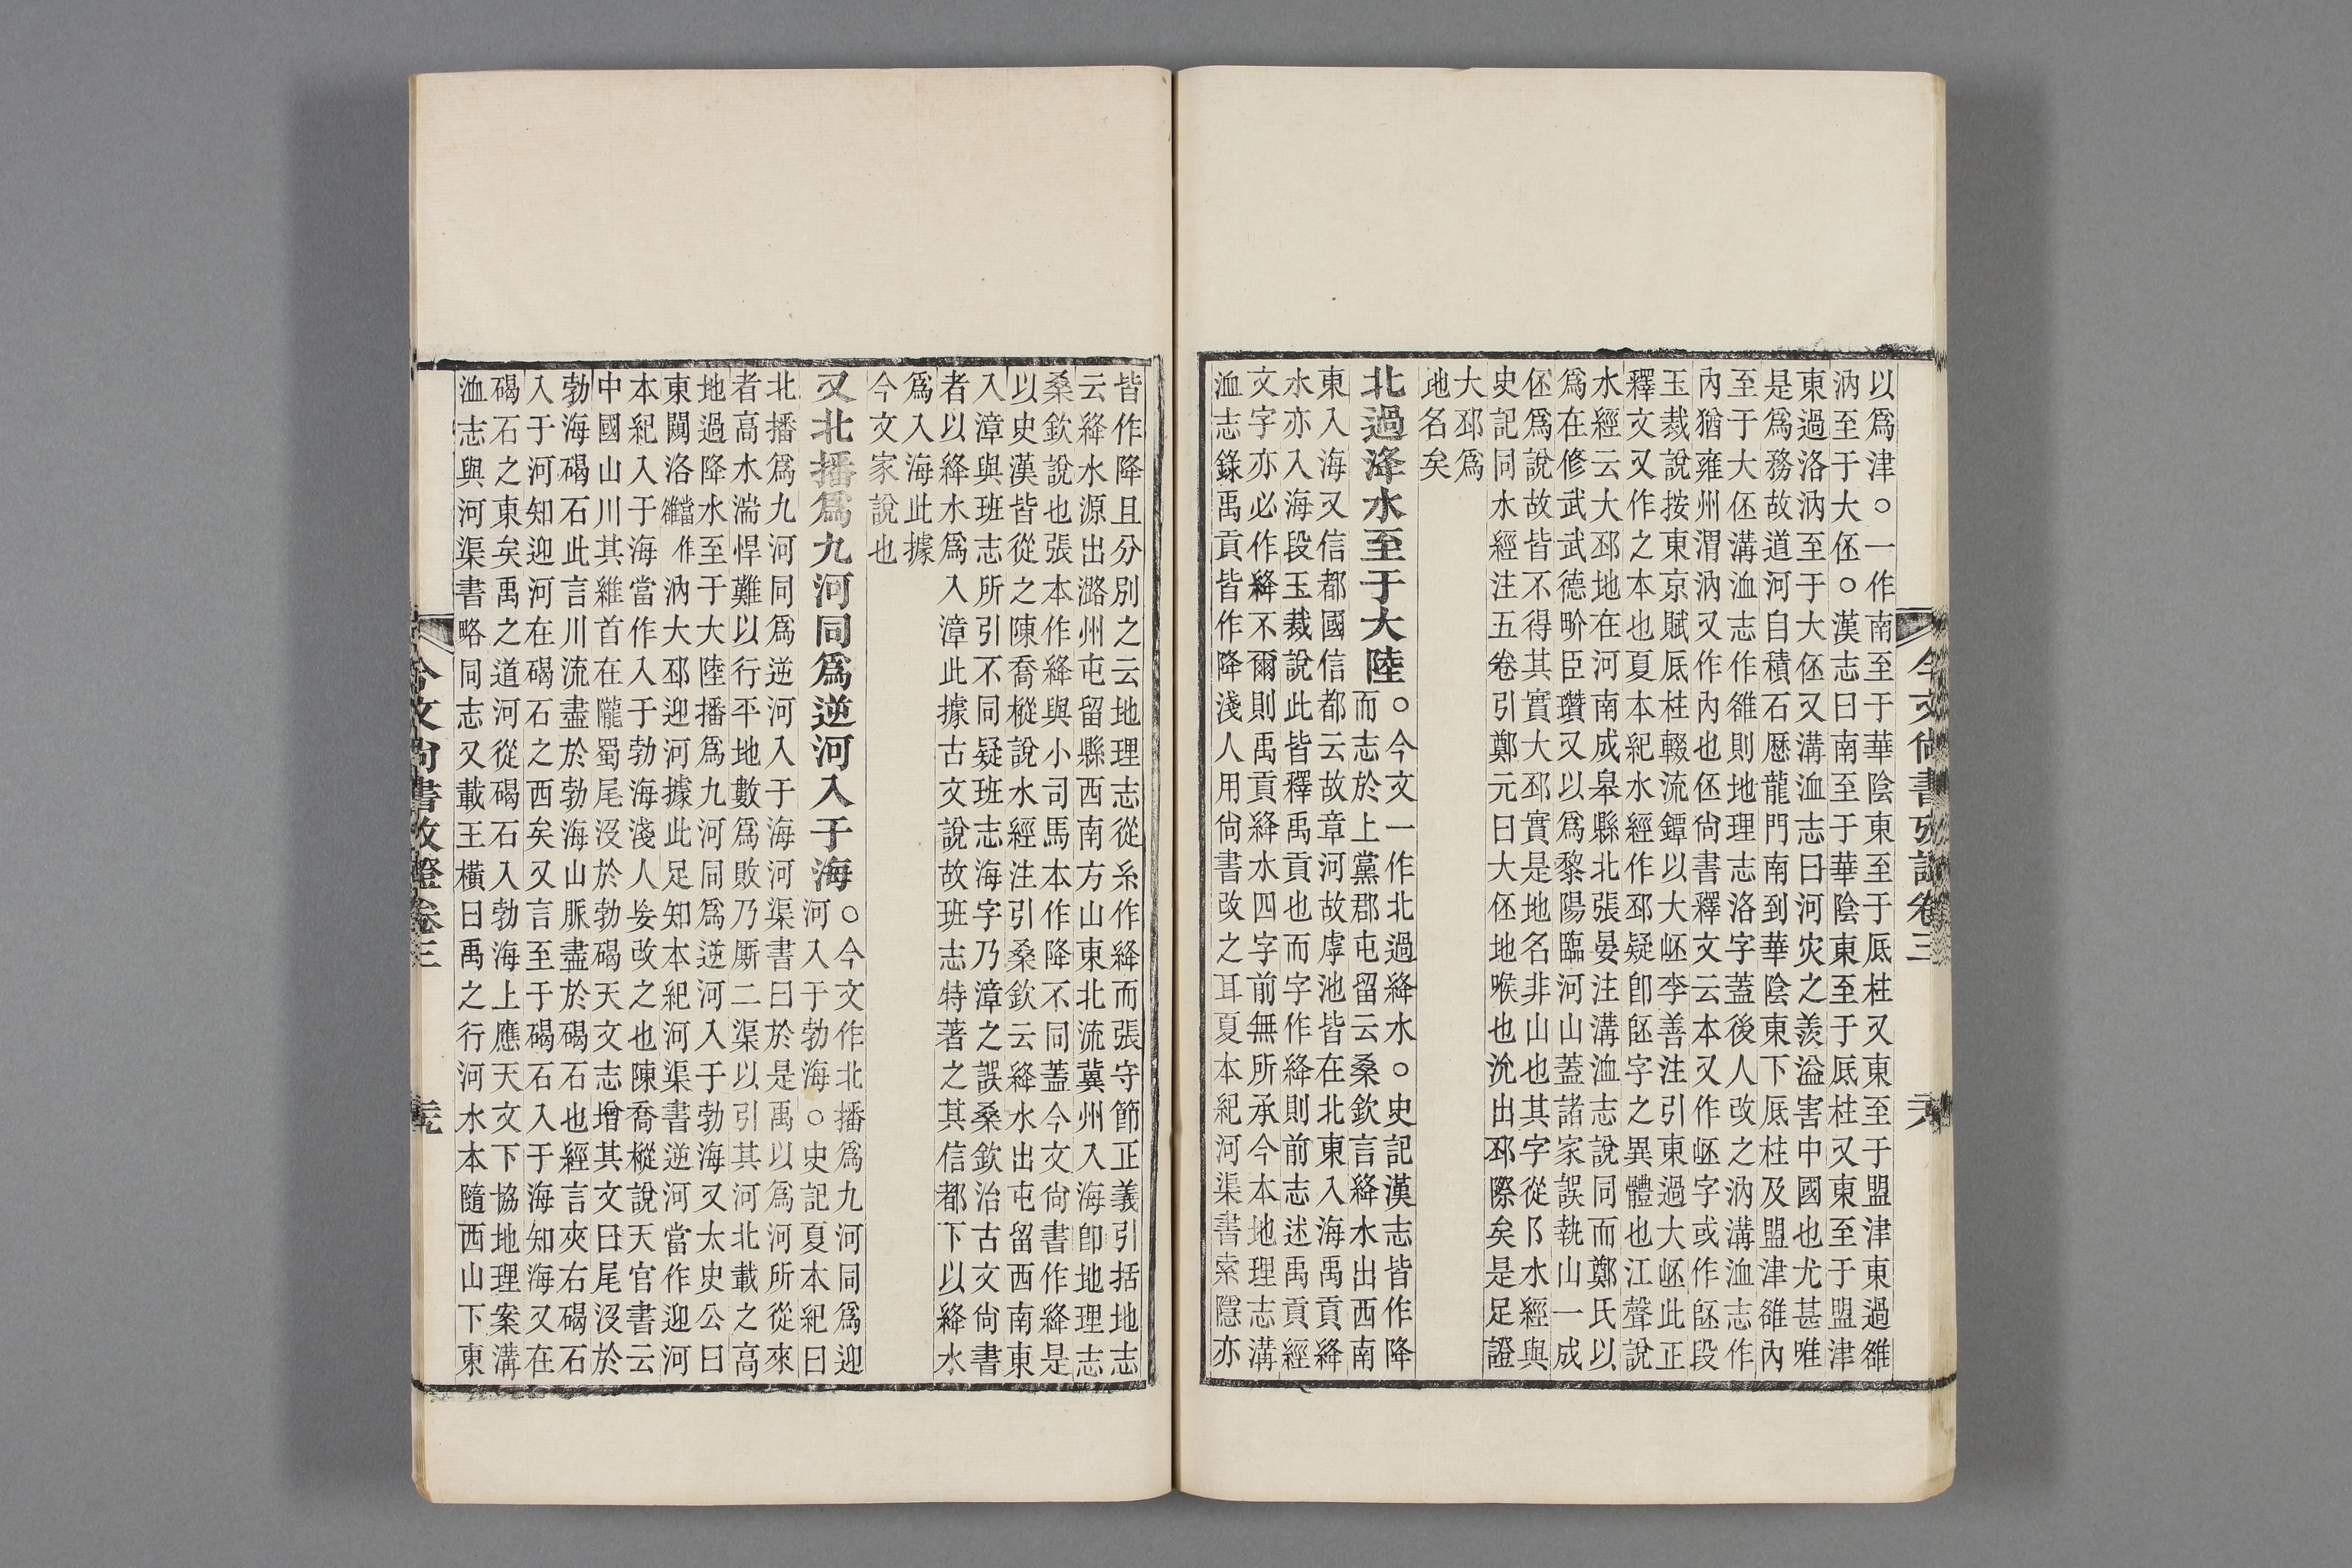 以爲津○一作南至于華陰東至于厎柱又東至于盟津東過雒
汭至于大伾○漢志曰南至于華陰東至于厎柱又東至于盟津
東過洛汭至于大伾又溝洫志曰河灾之羨溢害中國也尤甚唯
是爲務故道河自積石歷龍門南到華陰東下厎柱及盟津雒內
至于大伾溝洫志作雒則地理志洛字蓋後人改之汭溝洫志作
內猶雍州渭汭又作內也伾尙書釋文云本又作岯字或作𨹟段
玉裁說按東京賦厎柱輟流鐔以大岯李善注引東過大岯此正
釋文又作之本也夏本紀水經作邳疑卽𨹟字之異體也江聲說
水經云大邳地在河南成皋縣北張晏注溝洫志說同而鄭氏以
爲在修武武德畍臣瓚又以爲黎陽臨河山蓋諸家誤執山一成
伾爲說故皆不得其實大邳實是地名非山也其字從阝水經與
史記同水經注五卷引鄭元曰大伾地喉也沇出邳際矣是足證
大邳爲
地名矣
北過洚水至于大陸○今文一作北過絳水○史記漢志皆作降
而志於上黨郡屯留云桑欽言絳水出西南
東入海又信都國信都云故章河故虖池皆在北東入海禹貢絳
水亦入海段玉裁說此皆釋禹貢也而字作絳則前志述禹貢經
文字亦必作絳不爾則禹貢絳水四字前無所承今本地理志溝
洫志錄禹貢皆作降淺人用尙書改之耳夏本紀河渠書索隱亦
今文尙書攷證卷三
皆作降且分別之云地理志從糸作絳而張守節正義引括地志
云絳水源出潞州屯留縣西南方山東北流冀州入海卽地理志
桑欽說也張本作絳與小司馬本作降不同蓋今文尙書作絳是
以史漢皆從之陳喬樅說水經注引桑欽云絳水出屯留西南東
入漳與班志所引不同疑班志海字乃漳之誤桑欽治古文尙書
者以絳水爲入漳此據古文說故班志特著之其信都下以絳水
爲入海此據
今文家說也
又北播爲九河同爲逆河入于海○今文作北播爲九河同爲迎
河入于勃海○史記夏本紀曰
北播爲九河同爲逆河入于海河渠書曰於是禹以爲河所從來
者高水湍悍難以行平地數爲敗乃厮二渠以引其河北載之高
地過降水至于大陸播爲九河同爲逆河入于勃海又太史公曰
東闚洛汭大邳迎河據此足知本紀河渠書逆河當作迎河
本紀入于海當作入于勃海淺人妄改之也陳喬樅說天官書云
中國山川其維首在隴蜀尾沒於勃碣天文志增其文曰尾沒於
勃海碣石此言川流盡於勃海山脈盡於碣石也經言夾右碣石
入于河知迎河在碣石之西矣又言至于碣石入于海知海又在
碣石之東矣禹之道河從碣石入勃海上應天文下協地理案溝
洫志與河渠書略同志又載王橫曰禹之行河水本隨西山下東
今文尙書攷證卷三